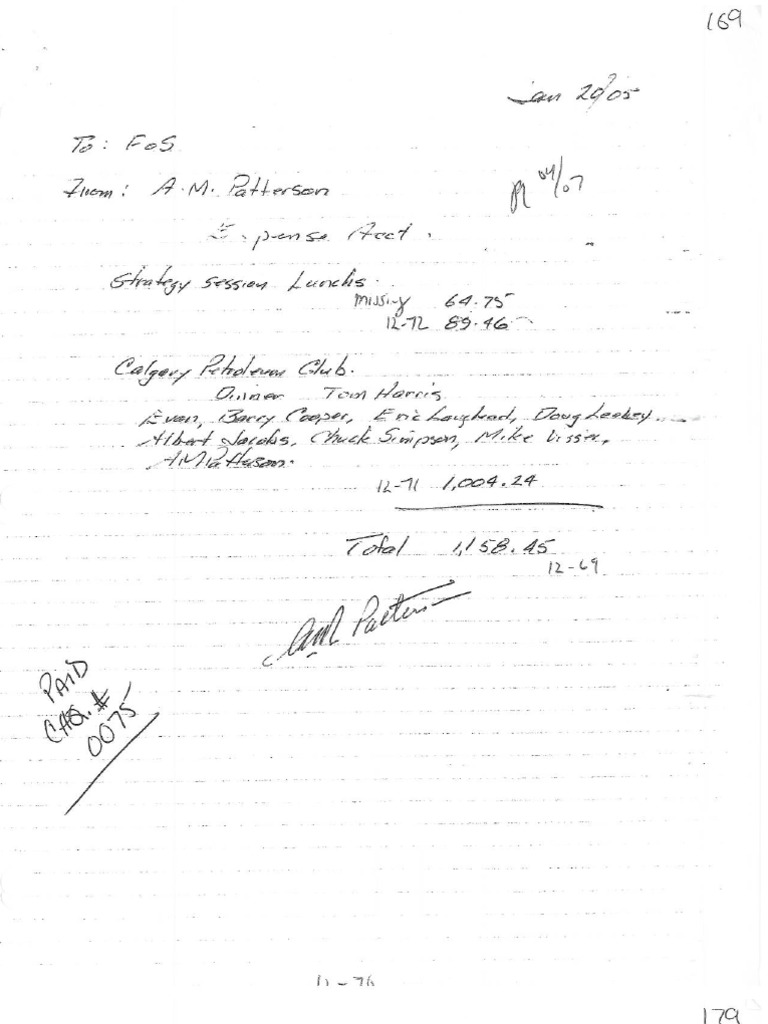 169
Jan 20/05
To: FoS
From: A.M. Patterson
04/07
Expense Acct.
Strategy Session Lunchs.
missing 64.75
12-72 89.46
Calgary Petroleum Club.
Dinner Tom Harris
Evan, Barry Cooper, Eric Loughead, Doug Leahey.
Albert Jacobs, Chuck Simpson, Mike Visser,
AMPatterson.
12-71 1,004.24
Total 1,158.45
12-69
Patterson
PAID
CHQ. #
0075
12-76
179